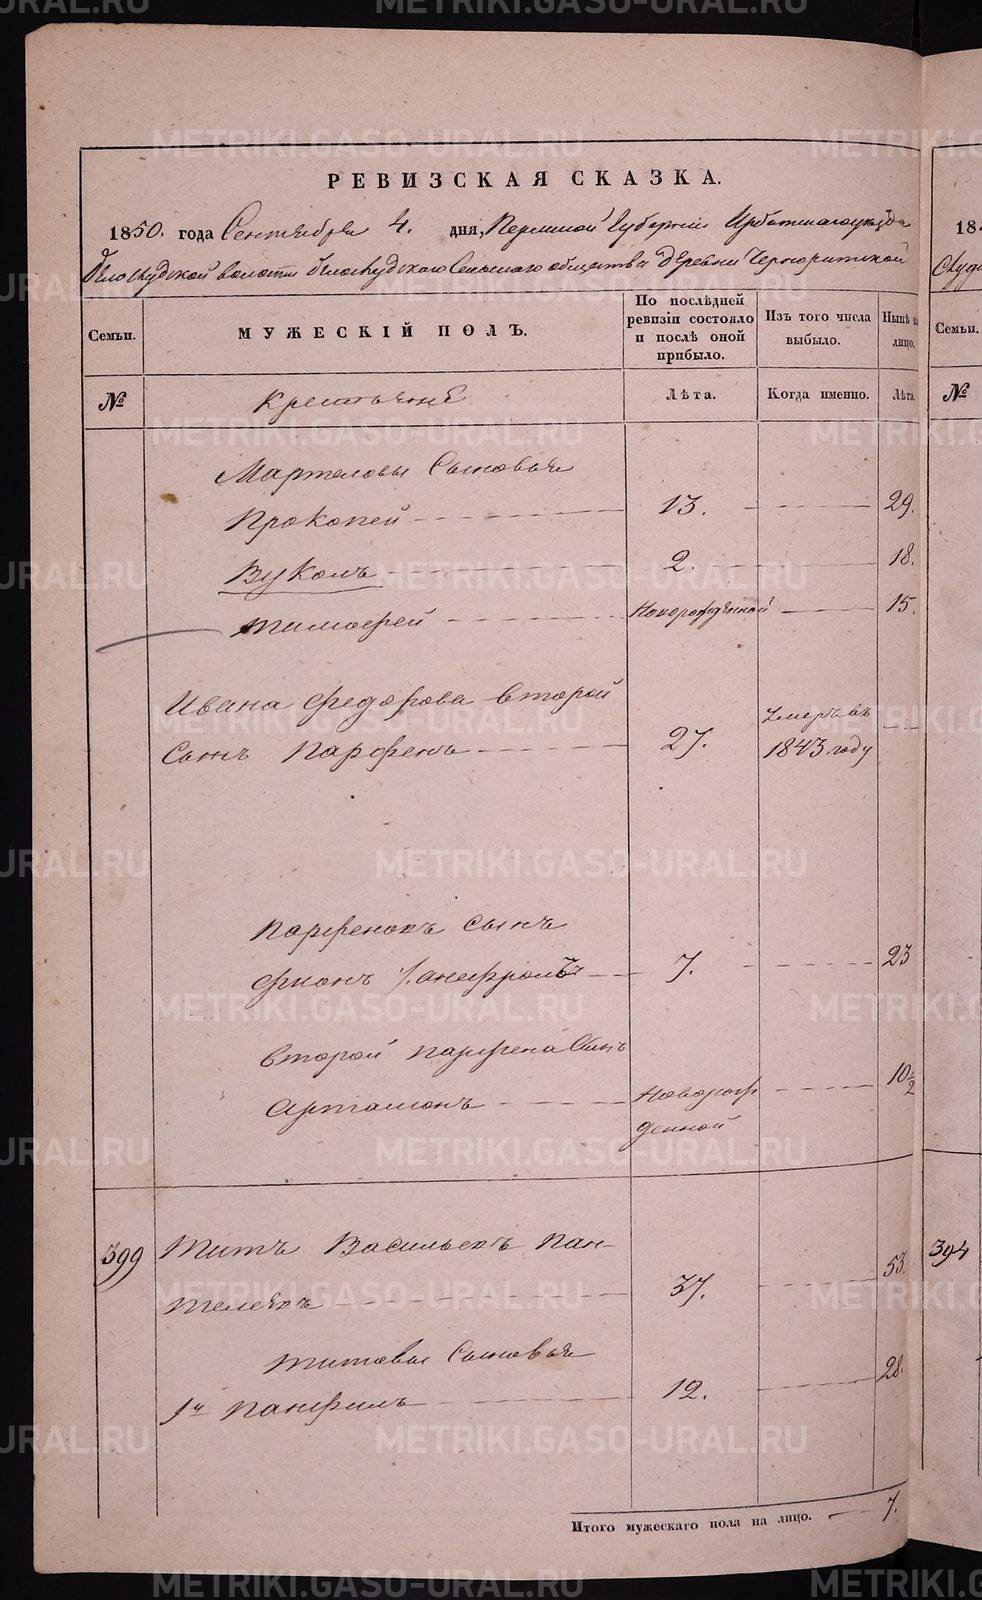 РЕВИЗСКАЯ СКАЗКА.
1850. года Сентября 4. дня, Пермской Губернии Ирбитскаго уезда
Белослудской волости Белослудскаго Сельскаго общества деревни
Семьи.
МУЖЕСКІЙ ПОЛЪ.
По послѣдней ревизіи состояло и послѣ оной прибыло.
Изъ того числа выбыло.
Нынѣ на лицо.
Семьи.
№
Крестьяне
Лѣта.
Когда именно.
Лѣта.
№
Сыновья
Прокопей 13. 29.
Вуколъ 2. 18.
Тимофей Новорожденной 15.
Ивана Федорова второй
Сынъ Парфенъ 27. Умеръ въ 1843 году
Парфеновъ сынъ
7. 23
Второй Парфена Сынъ
Артамонъ Новорожденной 10½
399 Титъ Васильевъ Пан-
телеевъ 37. 53.
394
Титовы Сыновья
1й Панфилъ 12. 28.
Итого мужескаго пола на лицо. 7.
METRIKI.GASO-URAL.RU